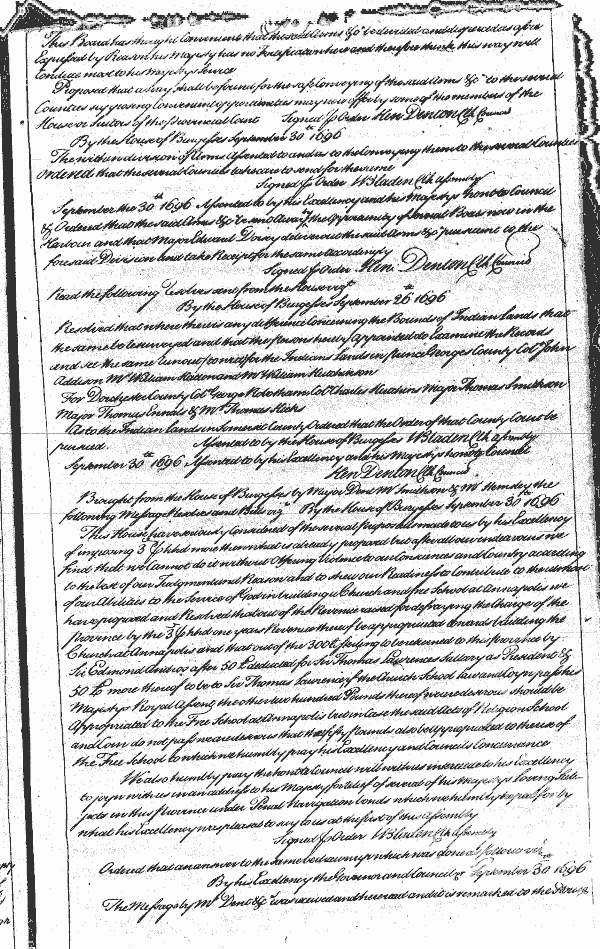 This Board has thought Convenient that the said Arms &c be divided and disposed as afore
Expressed by Reason his Majesty has no Fortification here and therefore think this way will
Conduce most to his Majestys Service
Proposed that a way shall be found for the safe Conveying of the said Arms &c to the several
Counties supposing Convenient opportunities may now offer by some of the members of the
House or Suitors of the Provincial Court Signed p Order Hen Denton Clk Council
By the House of Burgesses September 30 1696
The within division of Arms Assented to and as to the Conveying them to the several Counties
ordered that the several Counties take care to send for the same
Signed p Order W Bladen Clk Assembly
September the 30th 1696 Assented to by his Excellency and his Majestys honoble Council
& Ordered that the said Arms &c be sent away by the opportunity of several Boats now in the
Harbour and that Major Edward Dorsey deliver out the said Arms &c pursuant to the
foresaid Division and take Receipts for the same accordingly
Signed p Order Hen: Denton Clk Council
Read the following Resolves sent from the House vizt
By the House of Burgesses September 26th 1696
Resolved that where there is any difference Concerning the Bounds of Indian Lands that
the same be resurveyed and that the persons hereby appointed do Examine the Records
and see the same run out for the Indians Lands in prince Georges County Colo John
Addison Mr William Hutton and Mr William Hutchison
For Dorchester County Colo George Robotham Colo Charles Hutchins Major Thomas Smithson
Major Thomas Ennals & Mr Thomas Hicks
As to the Indian Lands in Somerset County Ordered that the Order of that County Court be
pursued. Assented to by the House of Burgesses W Bladen Clk Assembly
September 30th 1696 Assented to by his Excellency and his Majestys honoble Council
Hen Denton Clk Council
Brought from the House of Burgesses by Major Dent Mr Smithson & Mr Hemsley the
following Message Resolves and Bills vizt By the House of Burgesses September 30th 1696
This House have seriously Considered of the several proposals made to us by his Excellency
of imposing 3d p hhd more then what is already prepared but after all our endeavours we
find that we cannot do it without offering Violence to our Consciences and Country according
to the best of our Judgment and Reason and to shew our Readiness to Contribute to the utmost
of our Abilities to the Service of God in building a Church and free School at Annapolis we
have proposed and Resolved that out of the Revenue raised for defraying the Charge of the
Province by the 3d p hhd one years Revenue thereof be appropriated towards building the
Church at Annapolis and that out of the 300£ sterling to be returned to this province by
Sir Edmond Andros after 50£ deducted for Sir Thomas Lawrences Sallary as President &
50£ more thereof to be to Sir Thomas Lawrence if the Church School Law and pass his
Majestys Royal Assent the other two hundred Pounds thereof we are desirous should be
Appropriated to the Free School at Annapolis but in Case the said Acts of Religion School
and Loan do not pass we are desirous that the fifty pounds also be appropriated to the use of
the Free School to which we humbly pray his Excellency and Councils Concurrence
We also humbly pray the honoble Council will with us intercede to his Excellency
to joyn with us in an address to his Majesty for relief of several of his Majestys Loving Sub-
jects in this province under Penal Navigation bonds which we humbly hope for by
what his Excellency were pleased to say to us at the first of this Assembly
Signed p Order W Bladen Clk Assembly
Ordered that an answer to the same be drawn up which was done as followeth
By his Excellency the Governor and Council September 30 1696
The Message by Mr Dent &c was received and heard and it is remarked as to the